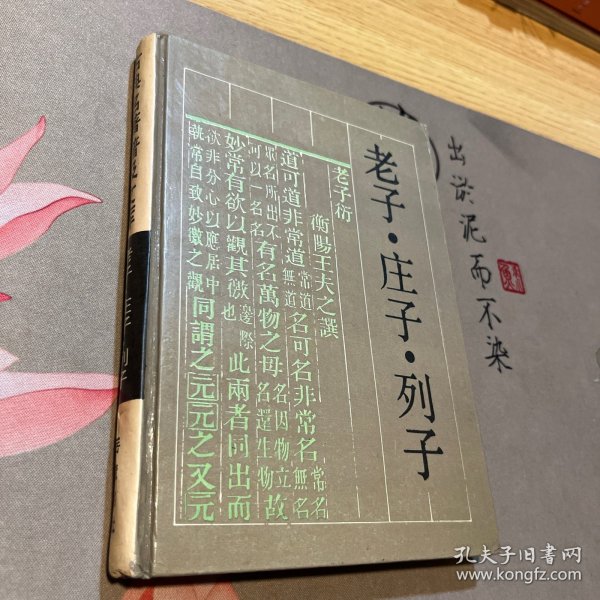 老子·庄子·列子
老子衍
衡陽王夫之譔
道可道非常道常道無道名可名非常名常名無名
眾名所出不可以一名名有名萬物之母名因物立名還生物故
妙常有欲以觀其徼邊際也此兩者同出而
欲非分心以應居中執常自致妙徼之觀同謂之元元之又元
出淤泥而不染
孔夫子旧书网
www.kongfz.com